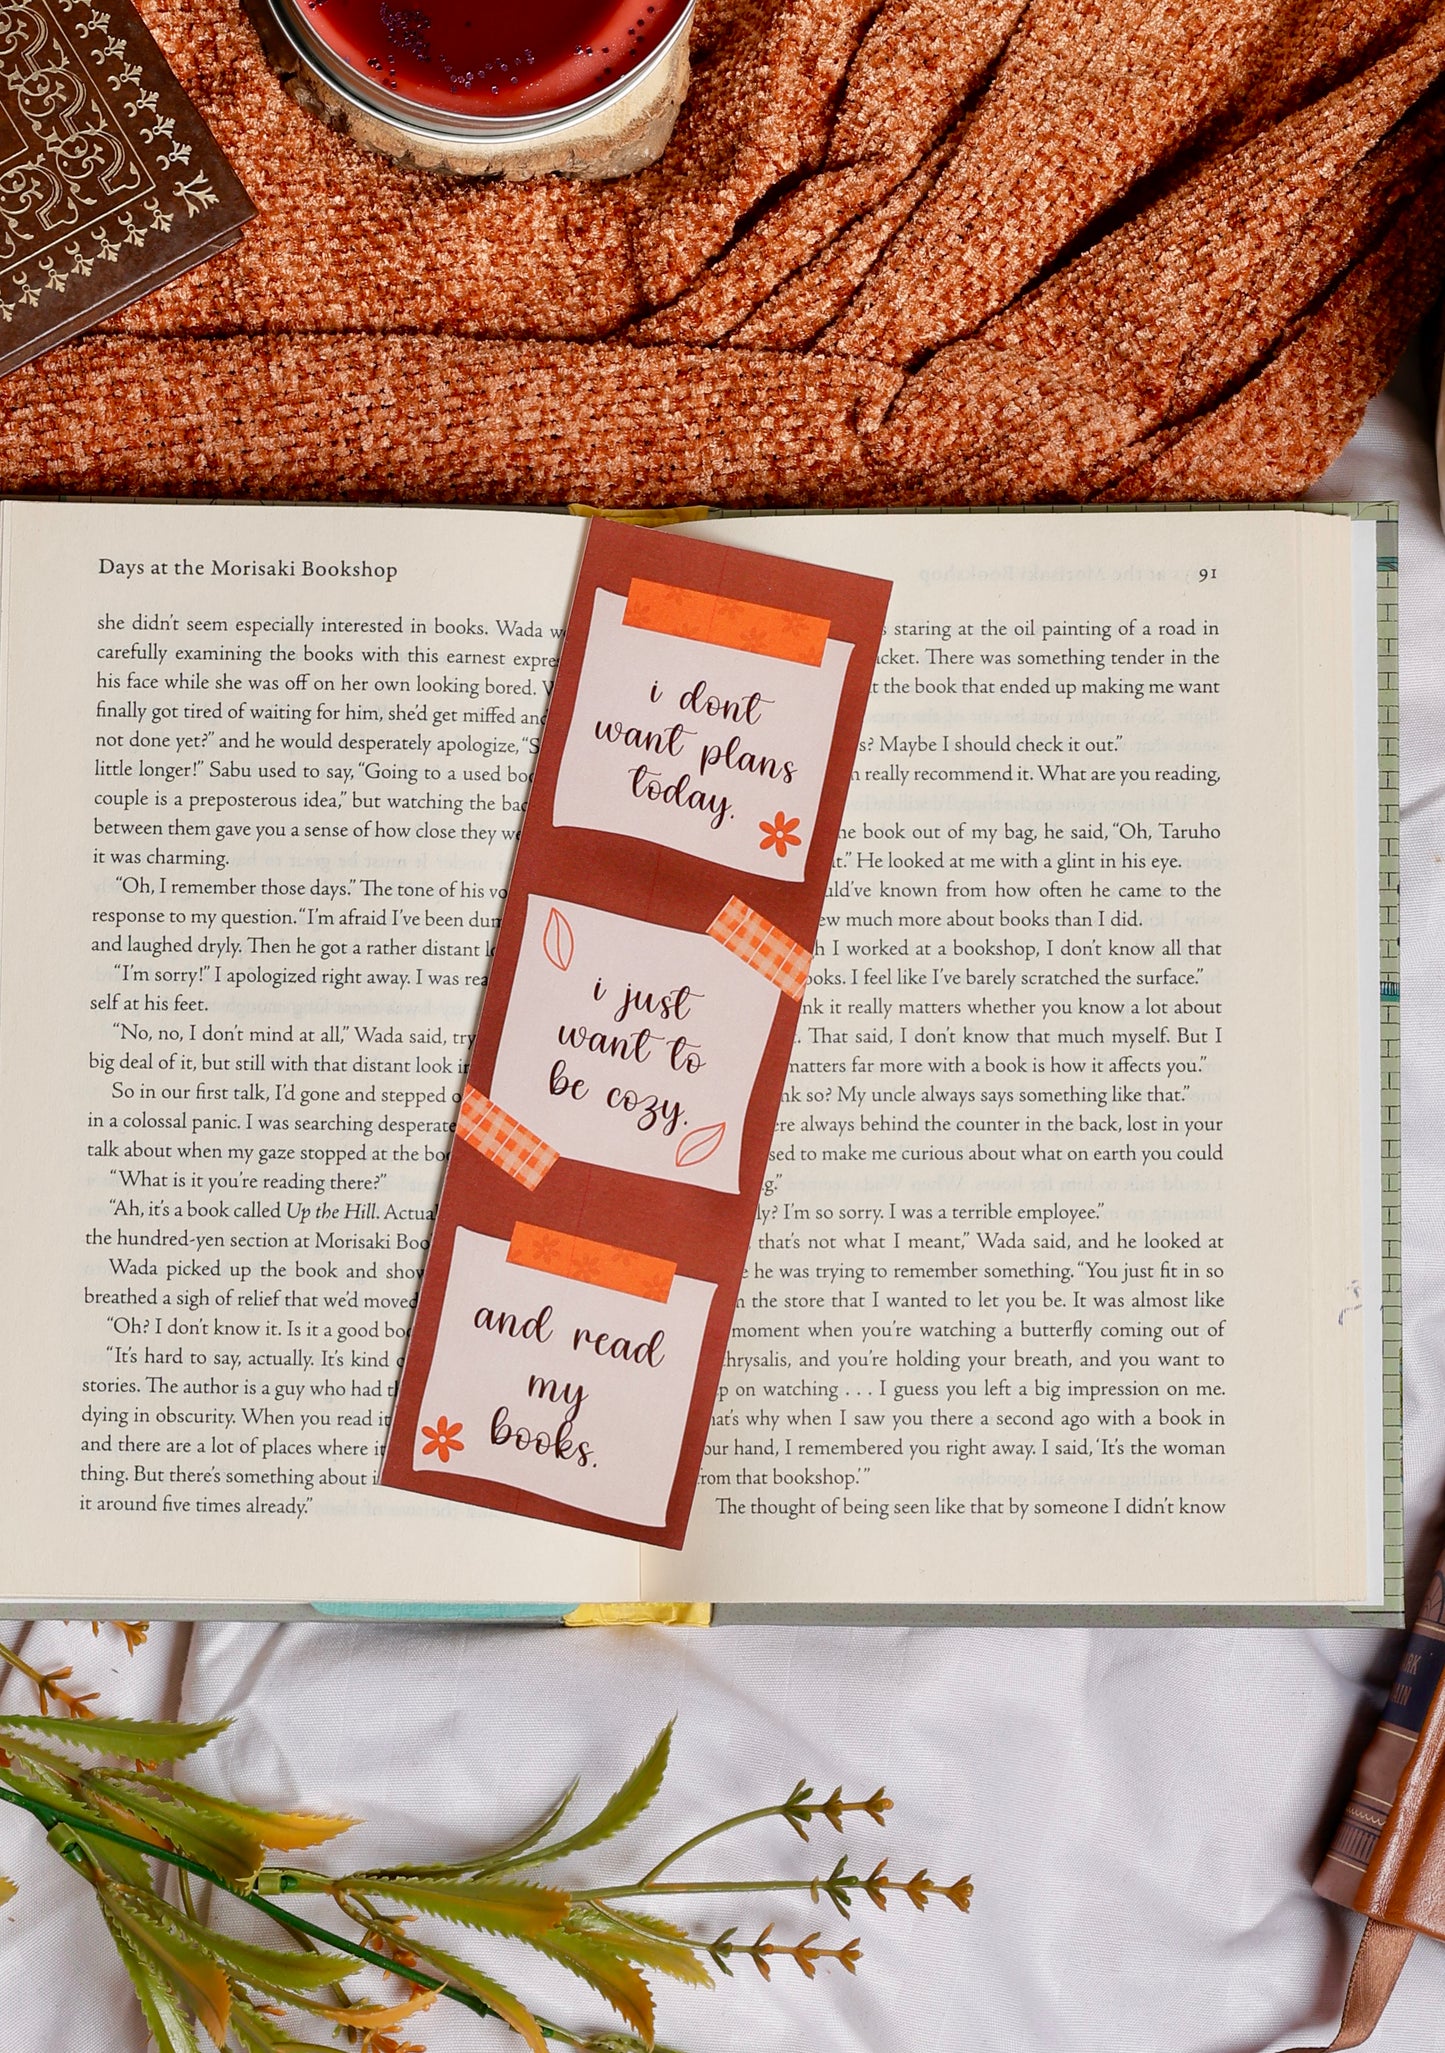 Days at the Morisaki Bookshop
she didn't seem especially interested in books. Wada
carefully examining the books with this earnest
his face while she was off on her own looking bored.
finally got tired of waiting for him, she'd get miffed and
not done yet?” and he would desperately apologize, “S
little longer!” Sabu used to say, “Going to a used
couple is a preposterous idea,” but watching the
between them gave you a sense of how close they
it was charming.
“Oh, I remember those days.” The tone of his
response to my question. “I'm afraid I've been
and laughed dryly. Then he got a rather distant
“I'm sorry!” I apologized right away. I was
self at his feet.
“No, no, I don't mind at all,” Wada said,
big deal of it, but still with that distant look
So in our first talk, I'd gone and stepped
in a colossal panic. I was searching
talk about when my gaze stopped at the
“What is it you're reading there?”
“Ah, it's a book called Up the Hill.
the hundred-yen section at Morisaki
Wada picked up the book and
breathed a sigh of relief that we'd moved
“Oh? I don't know it. Is it a good
“It's hard to say, actually. It's kind
stories. The author is a guy who had
dying in obscurity. When you read it
and there are a lot of places where
thing. But there's something about
it around five times already.”
i dont
want plans
today.
i just
want to
be cozy.
and read
my
books.
91
staring at the oil painting of a road in
There was something tender in the
the book that ended up making me want
Maybe I should check it out.”
really recommend it. What are you reading,
book out of my bag, he said, “Oh, Taruho
He looked at me with a glint in his eye.
known from how often he came to the
much more about books than I did.
I worked at a bookshop, I don't know all that
I feel like I've barely scratched the surface.”
it really matters whether you know a lot about
That said, I don't know that much myself. But I
matters far more with a book is how it affects you.”
so? My uncle always says something like that.”
always behind the counter in the back, lost in your
to make me curious about what on earth you could
I'm so sorry. I was a terrible employee.”
that's not what I meant,” Wada said, and he looked at
he was trying to remember something. “You just fit in so
the store that I wanted to let you be. It was almost like
moment when you're watching a butterfly coming out of
chrysalis, and you're holding your breath, and you want to
on watching . . . I guess you left a big impression on me.
why when I saw you there a second ago with a book in
hand, I remembered you right away. I said, ‘It's the woman
from that bookshop.’”
The thought of being seen like that by someone I didn't know